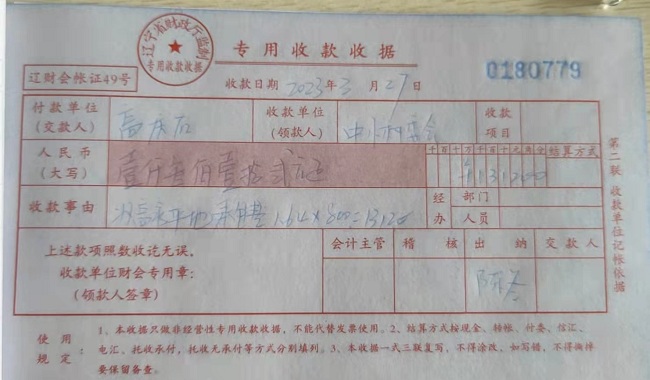 辽宁省财政厅监制
专用收款收据
专用收款收据
0180779
辽财会帐证49号
收款日期 2023年3月27日
付款单位 收款单位 收款
(交款人) (领款人) 项目
人民币 千百十万千百十元角分 结算方式
(大写) 壹仟叁佰壹拾贰元正 ¥131200
收款事由 1.64×800=1312 经 部门
办 人员
上述款项照数收讫无误。 会计主管 稽核 出纳 交款人
收款单位财会专用章:
(领款人签章)
第二联 收款单位记帐依据
使用 1、本收据只做非经营性专用收款收据,不能代替发票使用。2、结算方式按现金、转帐、付委、信汇、
规定: 电汇、托收承付,托收无承付等方式分别填列。3、本收据一式三联复写,不得涂改,如写错,不得撕掉
要保留备查。